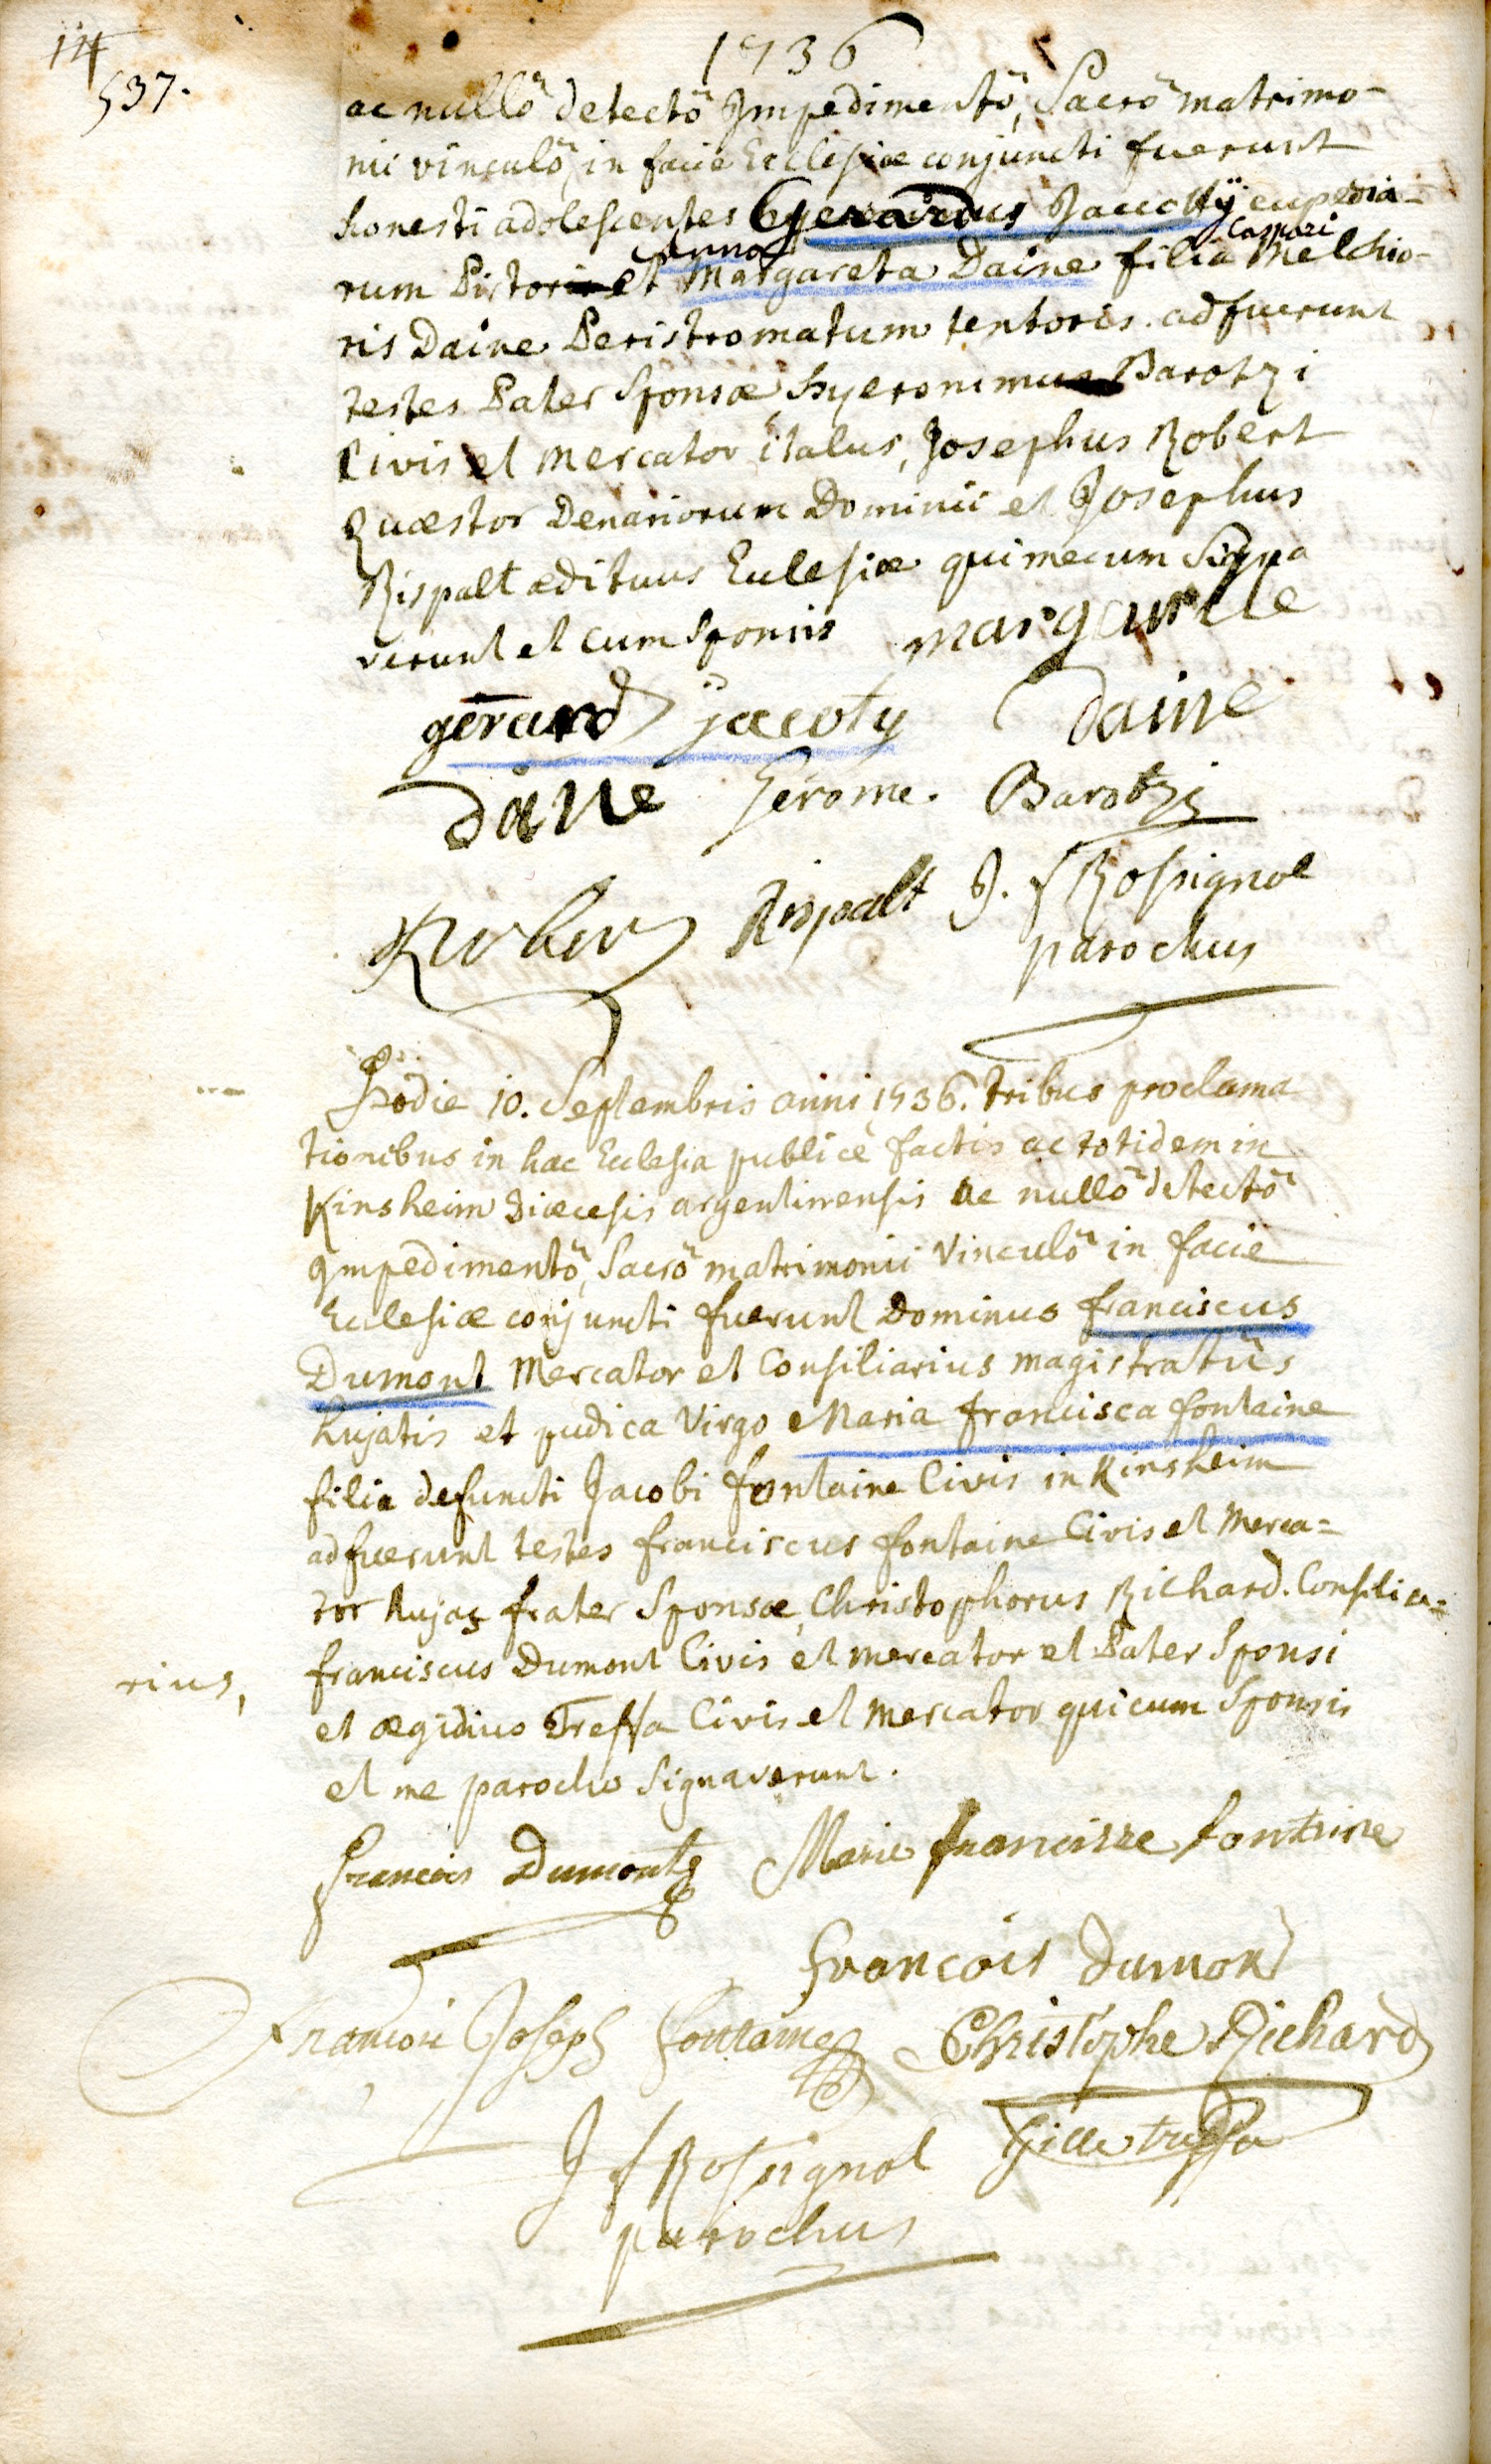 14
537.
1736
ac nullô detectô Impedimentô, Sacrô matrimo-
nii vinculô, in facie Ecclesiæ conjuncti fuerunt
honesti adolescentes Gerardus Jaccotÿ cupedia-
Anna Caspari
rum Pistor et Margareta Daine filia Melchio-
ris Daine Peristromatum textoris. adfuerunt
testes Pater Sponsæ, hyeronimus Barotzi
Civis et mercator italus, Josephus Robert
Quæstor Denariorum Dominii et Josephus
Rispalt ædituus Ecclesiæ qui mecum Signa
verunt et cum Sponsis margarette
gérard jacoty Daine
Daine Jérome. Barotzi
Robert Rispalt J. f Rossignol
parochus
Hodie 10. Septembris anni 1736. tribus proclama
tionibus in hac Ecclesia publicè factis ac totidem in
Kinsheim Diœcesis argentinensis ac nullô detectô
Impedimentô, Sacrô matrimonii Vinculô in facie
Ecclesiæ conjuncti fuerunt Dominus franciscus
Dumont Mercator et Consiliarius magistratûs
hujatis et pudica Virgo Maria francisca fontaine
filia defuncti Jacobi fontaine Civis in Kinsheim
adfuerunt testes franciscus fontaine Civis et Merca=
tor hujas frater Sponsæ, Christophorus Richard. Consilia=
rius, franciscus Dumont Civis et mercator et Pater Sponsi
et ægidius Treffa Civis et Mercator qui cum Sponsis
et me parocho Signaverunt.
francois Dumont Marie francisse fontaine
francois dumont
francois Joseph fontaine Christophe Richard
J f Rossignol Gille treffa
parochus